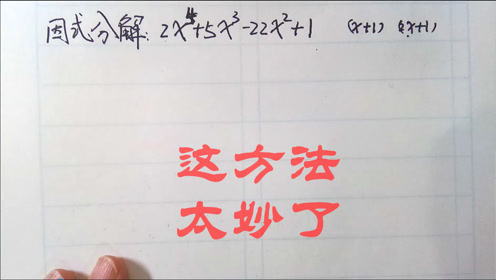 因式分解: 2x⁴+5x³-22x²+1 (x+1) (2x+1)
这方法
太妙了